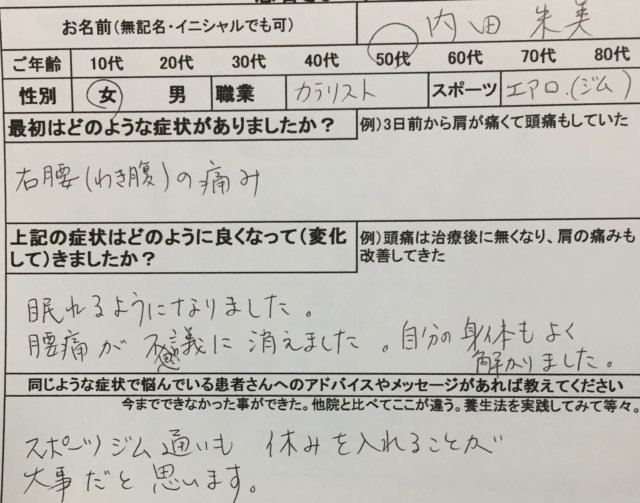 お名前(無記名・イニシャルでも可) 内田 朱美
ご年齢 10代 20代 30代 40代 50代 60代 70代 80代
性別 女 男 職業 カラリスト スポーツ エアロ.(ジム)
最初はどのような症状がありましたか? 例)3日前から肩が痛くて頭痛もしていた
右腰(わき腹)の痛み
上記の症状はどのように良くなって(変化 例)頭痛は治療後に無くなり、肩の痛みも
して)きましたか? 改善してきた
眠れるようになりました。
腰痛が 不思議に 消えました。自分の身体もよく
解かりました。
同じような症状で悩んでいる患者さんへのアドバイスやメッセージがあれば教えてください
今までできなかった事ができた。他院と比べてここが違う。養生法を実践してみて等々。
スポーツジム通いも 休みを入れることが
大事だと思います。